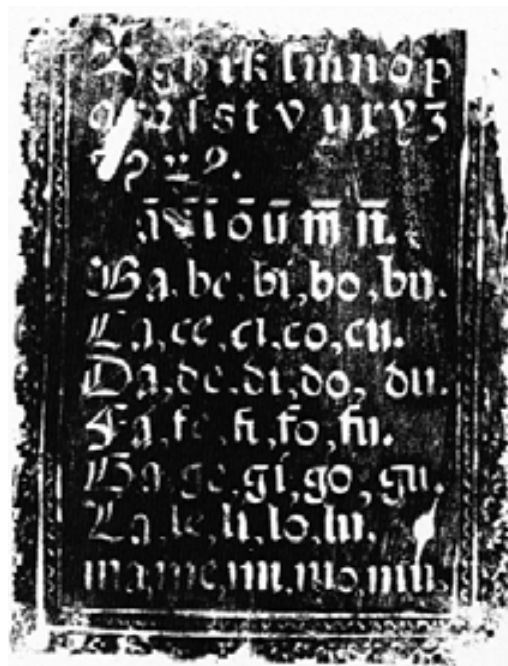 g h i k l m n o p
ſ s t v y x y ʒ
ā ī ō ū m̄ n̄.
Ba, be, bi, bo, bu.
Ca, ce, ci, co, cu.
Da, de, di, do, du.
Fa, fe, fi, fo, fu.
Ga, ge, gi, go, gu.
La, le, li, lo, lu.
ma, me, mi, mo, mu.